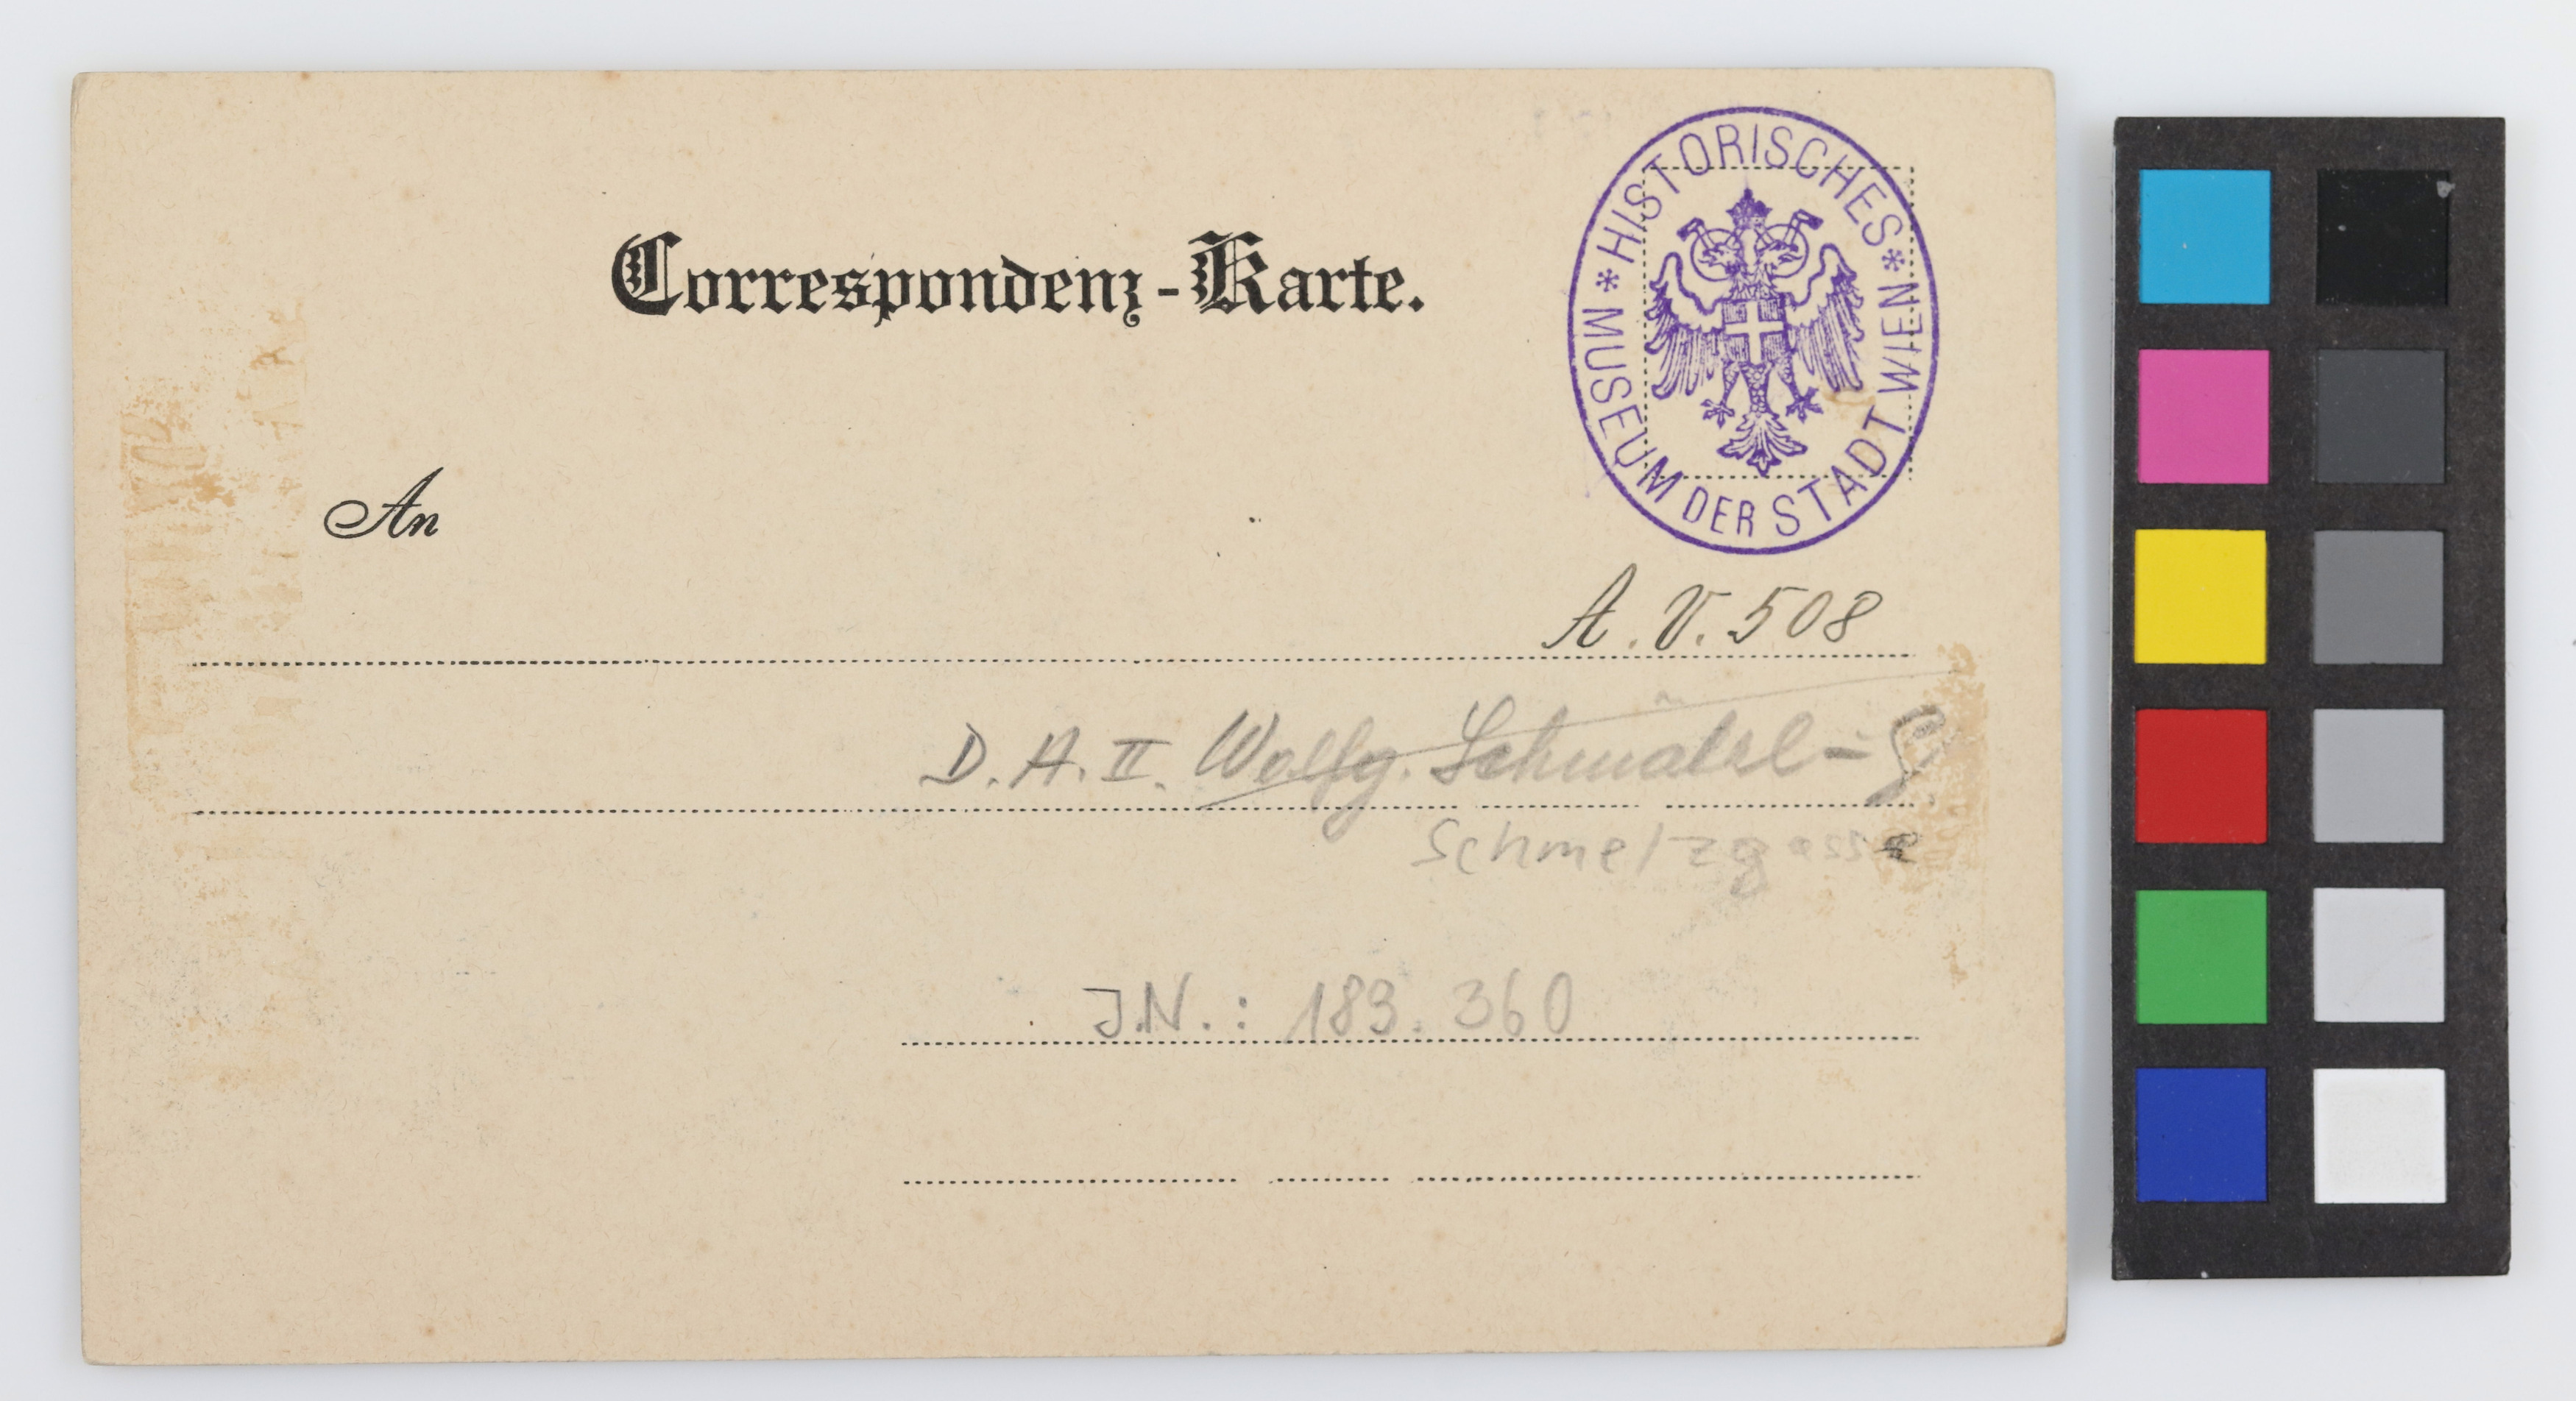 Correspondenz-Karte.
* HISTORISCHES *
MUSEUM DER STADT WIEN
An
A. V. 508
D. A. II. Wolfg. Schmälzl-G.
Schmelzgasse
J.N.: 183.360